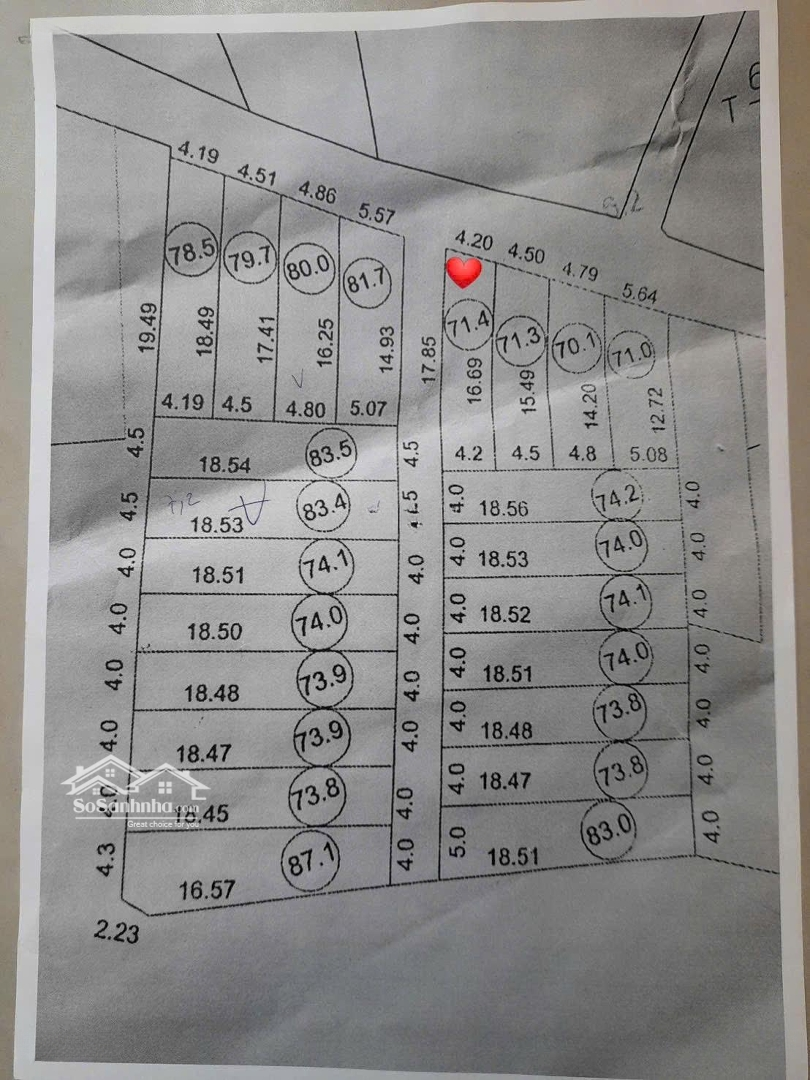 6
T
4.19 4.51 4.86 5.57
4.20 4.50 4.79 5.64
78.5 79.7 80.0 81.7
71.4 71.3 70.1 71.0
19.49 18.49 17.41 16.25 14.93
17.85 16.69 15.49 14.20 12.72
4.19 4.5 4.80 5.07
4.2 4.5 4.8 5.08
4.5 18.54 83.5 4.5
4.0 18.56 74.2 4.0
4.5 18.53 83.4 4.5
4.0 18.53 74.0 4.0
4.0 18.51 74.1 4.0
4.0 18.52 74.1 4.0
4.0 18.50 74.0 4.0
4.0 18.51 74.0 4.0
4.0 18.48 73.9 4.0
4.0 18.48 73.8 4.0
4.0 18.47 73.9 4.0
4.0 18.47 73.8 4.0
4.0 18.45 73.8 4.0
5.0 18.51 83.0 4.0
4.3 16.57 87.1 4.0
2.23
SoSanhnha.com
Great choice for you